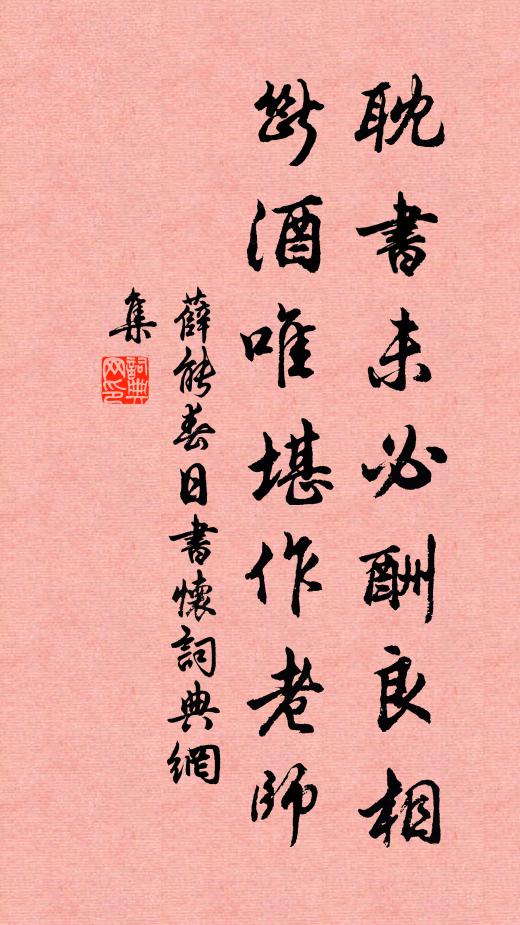 耽書未必酬良相
斷酒唯堪作老師
薛能春日書懷詞典網
集
詞典
网印